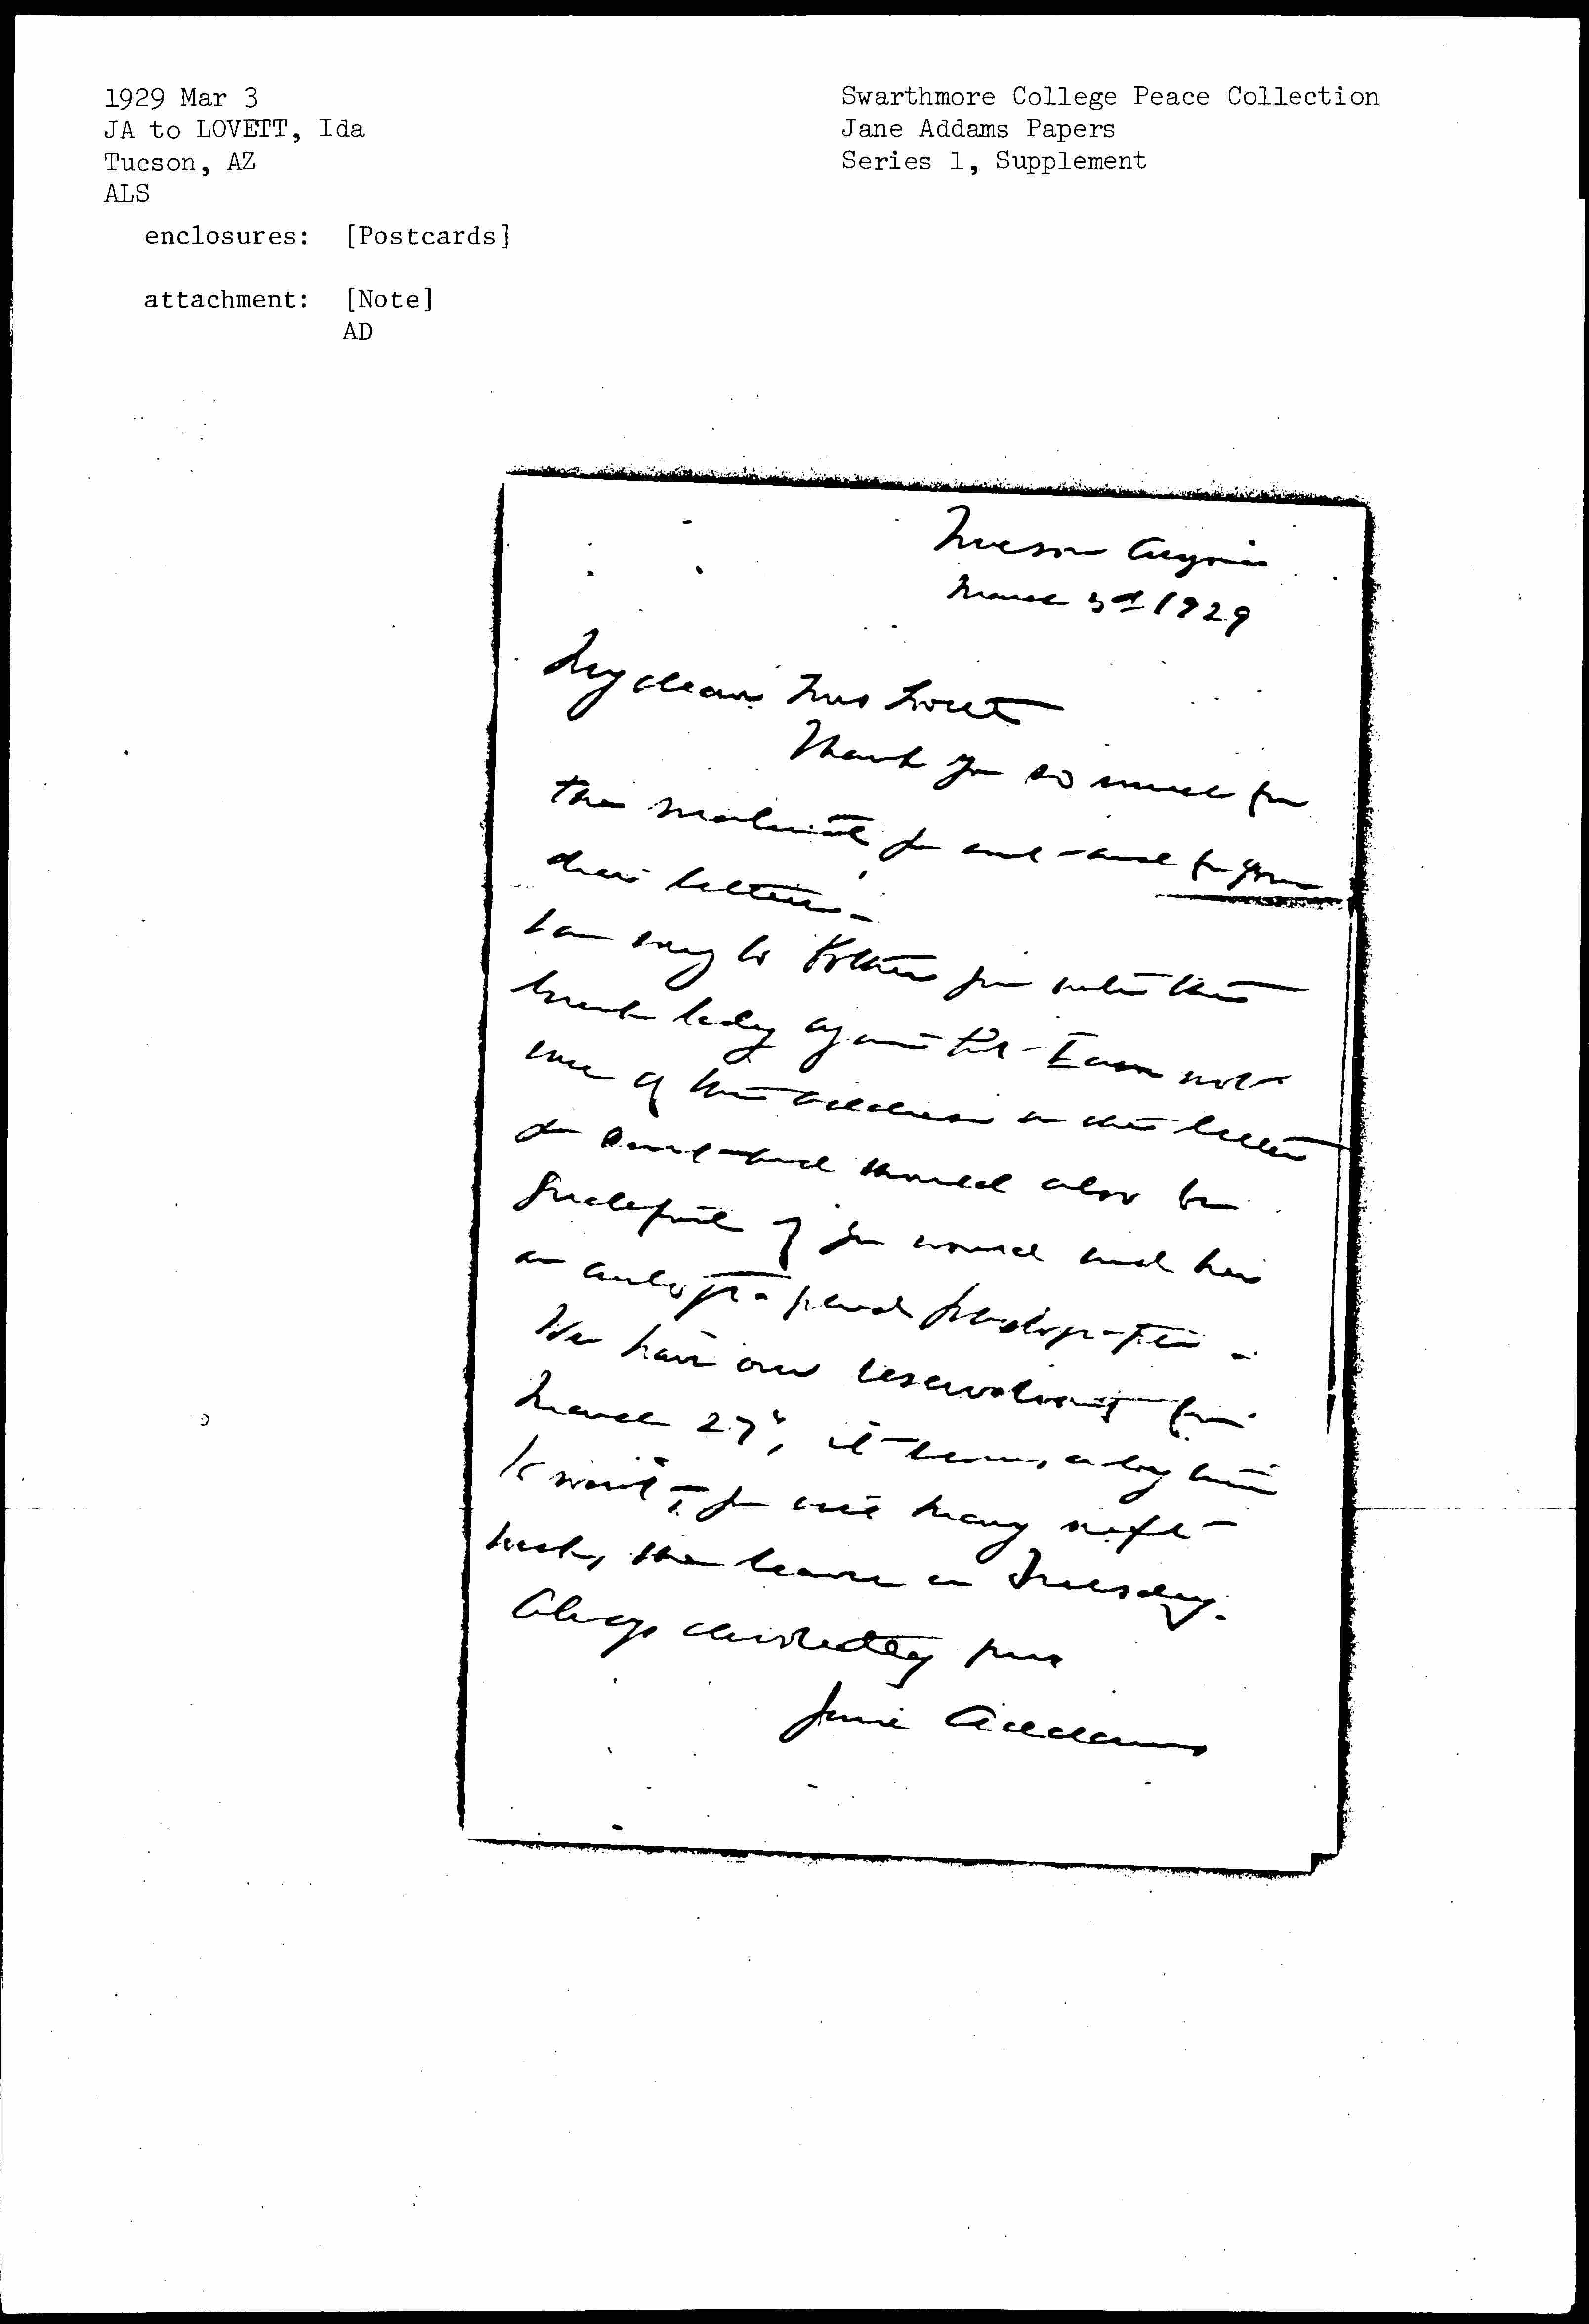 1929 Mar 3
JA to LOVETT, Ida
Tucson, AZ
ALS
enclosures: [Postcards]
attachment: [Note]
AD
Swarthmore College Peace Collection
Jane Addams Papers
Series 1, Supplement
Tucson Arizona
March 3d 1929
My dear Mrs Lovett
Thank you so much for
the material you send and for your
dear letter -
I am sorry to bother you with this
lady again but I am not
sure of the address in the letter
you and would also be
grateful if you would send her
an autographed photograph -
We have our reservations for
March 27", it seems a long time
to wait. You will Mary next
week, she leaves on Tuesday.
Always devotedly yours
Jane Addams